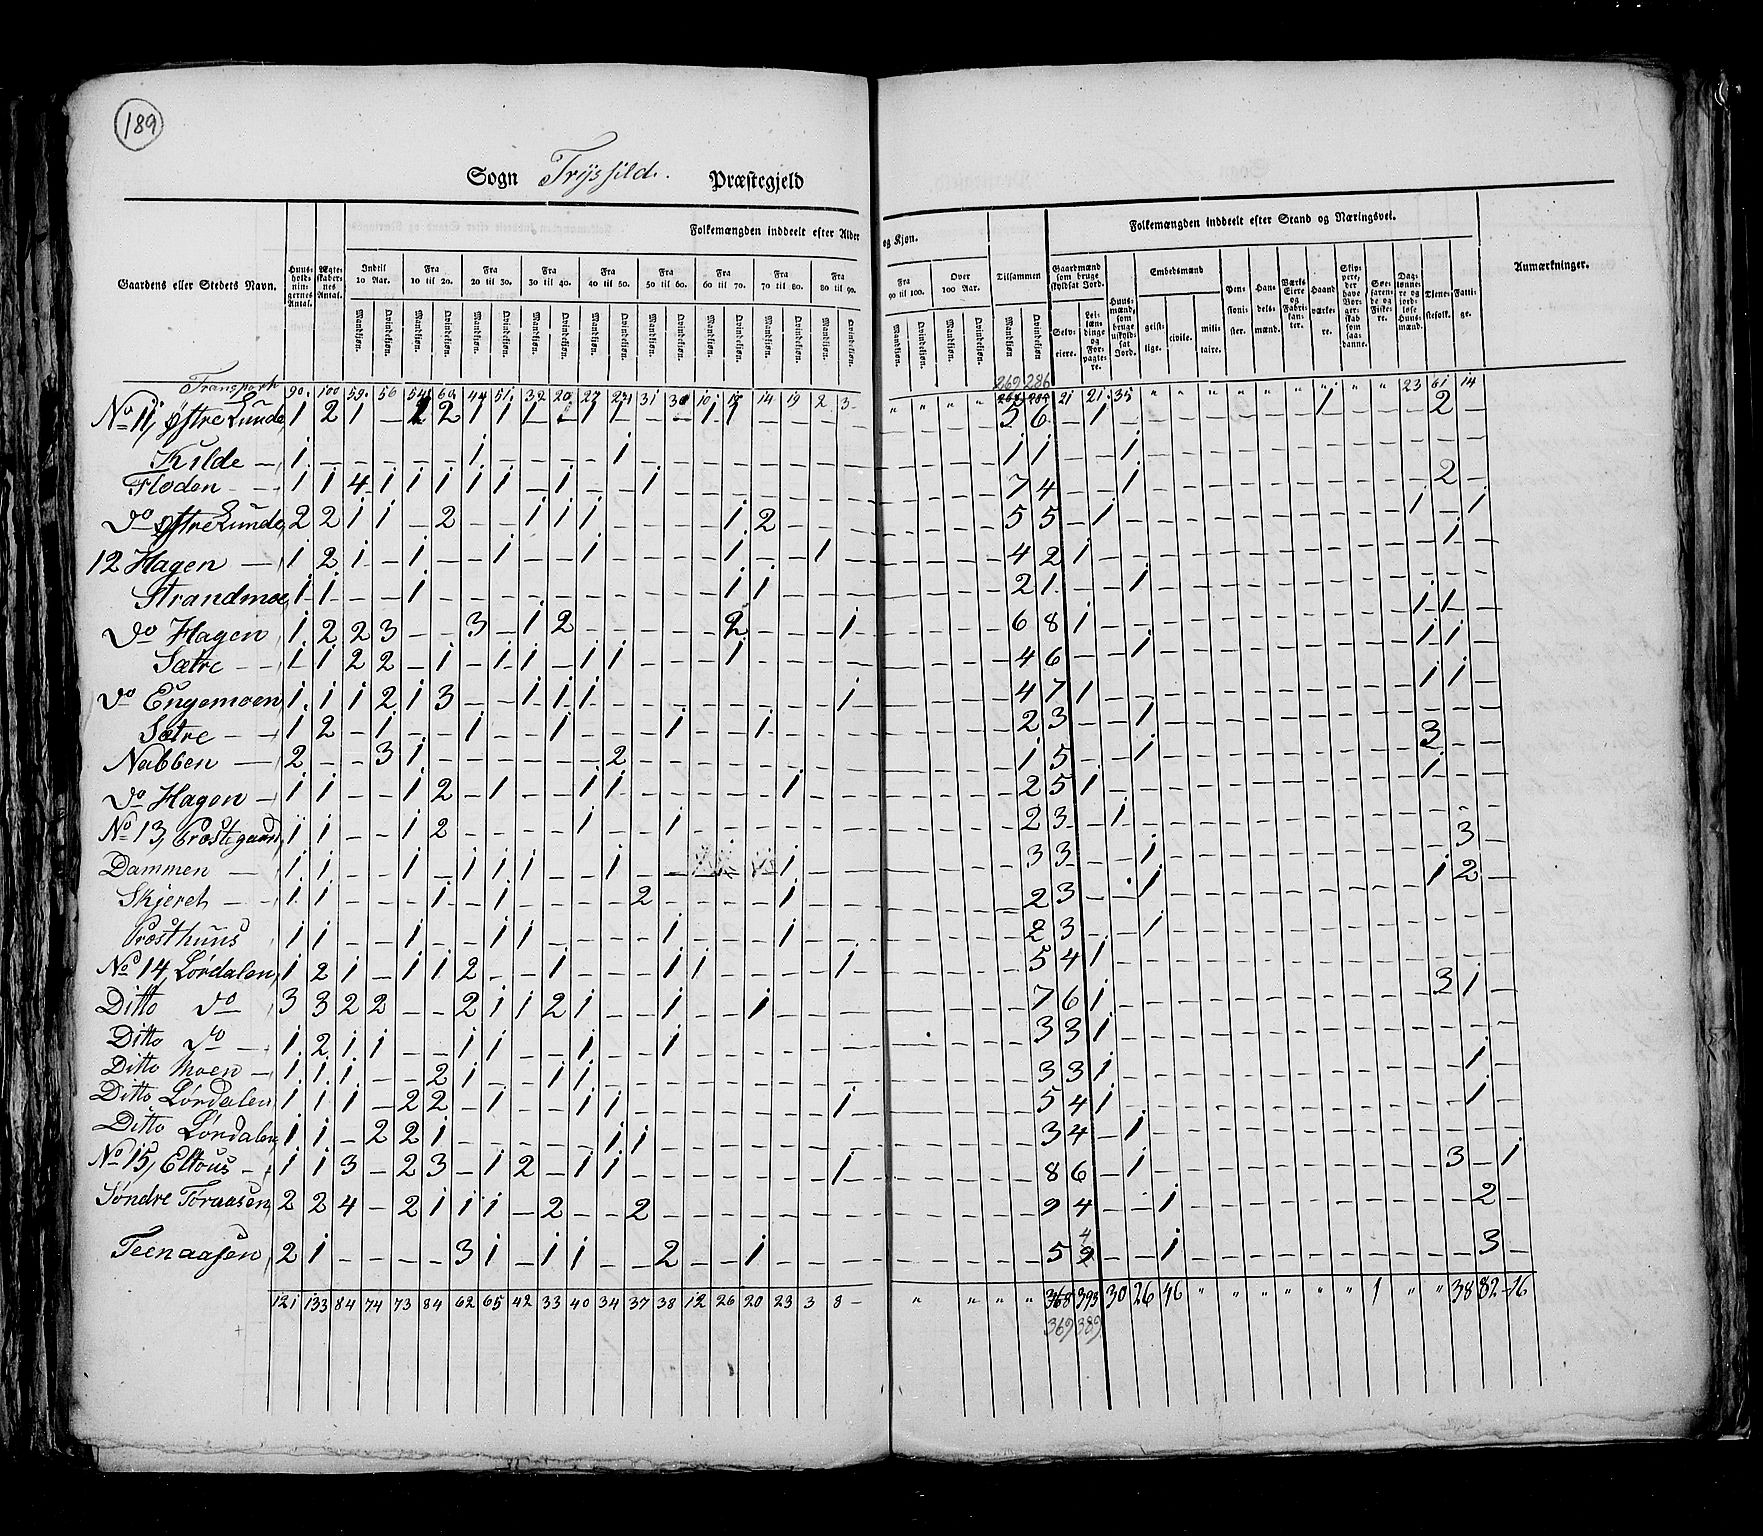 189
Sogn Trysfild. Præstegjeld
Folkemængden inddeelt efter Alder og Kjøn.
Folkemængden inddeelt efter Stand og Næringsvei.
Gaardens eller Stedets Navn.
Huusholdningernes Antal.
Ægteskabernes Antal.
Indtil 10 Aar.
Fra 10 til 20.
Fra 20 til 30.
Fra 30 til 40.
Fra 40 til 50.
Fra 50 til 60.
Fra 60 til 70.
Fra 70 til 80.
Fra 80 til 90.
Fra 90 til 100.
Over 100 Aar.
Tilsammen
Mandkjøn. Qvindekjøn.
Gaardmænd som bruge skyldsat Jord.
Selveiere.
Leilændinge og Forpagtere.
Huusmænd, som bruge uskyldsat Jord.
Embedsmænd
geistlige. civile. militaire.
Pensionister.
Handelsmænd.
Værkseiere og Fabrikanter.
Haandværkere.
Skippere, der have Borgerskab som saadanne.
Søefarende og Fiskere.
Daglønnere og jordløse Huusmænd.
Tjenestefolk.
Fattige.
Anmærkninger.
Transport 90. 100 59. 56 54 60 44 51. 32 20. 27 23 31 30 10. 19 14 19 2 3 269 286 21 21. 35 23 61 14
No 11, Østre Lunde, 1 2 1 – 1 2 1 1 1 – 1 1 – – 1 1 5 6 – 1 1 2
Kilde – 1 1 1 1 1 1
Floden – 1 1 4 1 1 1 1 1 – 1 – – 1 7 4 1 2
do Østre Lunde, 2 2 1 1 – 2 – – 1 1 1 1 2 5 5 – 1 1 – 1
12 Hagen – 1 2 1 – 1 – – 1 – – 1 1 – – 1 4 2 1 1
Strandmoe, 1 1 – – 1 1 1 2 1 1
do Hagen 1 2 2 3 – – 3 – 1 2 2 – – – 1 6 8 1 1 1
Sætre – 1 1 2 2 – 1 – 1 1 – 1 1 1 4 6 1 1 1
do Engemoen 1 1 1 2 1 3 – – 1 1 1 1 4 7 1 1 1
Sætre – 1 2 – 1 – – 1 – – 1 – – – 1 – – 1 2 3 1
Nabben – 2 – – 3 1 2 1 5 1 3
do Hagen – 1 1 – – 1 2 – 1 – – 1 1 1 2 5 1 1
No 13, Præstegaard, 1 1 – – 1 2 – – – – 1 – – 1 2 3 – 1 3
Dammen – 1 1 – – 1 – 1 1 1 – – 1 1 3 3 – – 1 1 2
Skjeret – 1 1 – – – 1 – 1 – – – – 2 1 2 3 – 1
Præsthuus 1 1 – – 1 – – 1 1 – – – – 1 – – – 1 2 3 – – 1
No 14, Lørdalen, 1 2 1 – 1 1 2 – – 1 – – – 1 1 1 5 4 1
Ditto do 3 3 2 2 – – 2 1 1 2 1 – – 1 – – 1 7 6 1 3 1
Ditto do – 1 2 1 1 – – 1 1 – – 1 – – 1 3 3 1
Ditto Moen – 1 1 1 – – 2 1 – – 1 1 3 3 1 1
Ditto Lørdalen 1 1 1 – 2 2 – 1 – – 1 1 1 5 4 1 1
Ditto Lørdalen, 1 1 – 2 2 1 1 1 3 4 – 1
No 15, Eltous – 1 1 3 – 2 3 – 1 2 – 1 1 1 8 6 – 1 3 – 1
Søndre Toraasen, 2 2 4 – 2 1 1 1 – 2 – – 2 9 4 – – 1 2
Teenaasen, 2 1 – – – – 3 1 – 1 1 – – 2 – – 1 5 4 – – 1 3
121 133 84 74 73 84 62 65 42 33 40 34 37 38 12 26 20 23 3 8 – 368 393 30 26 46 1 38 82 16
369 389